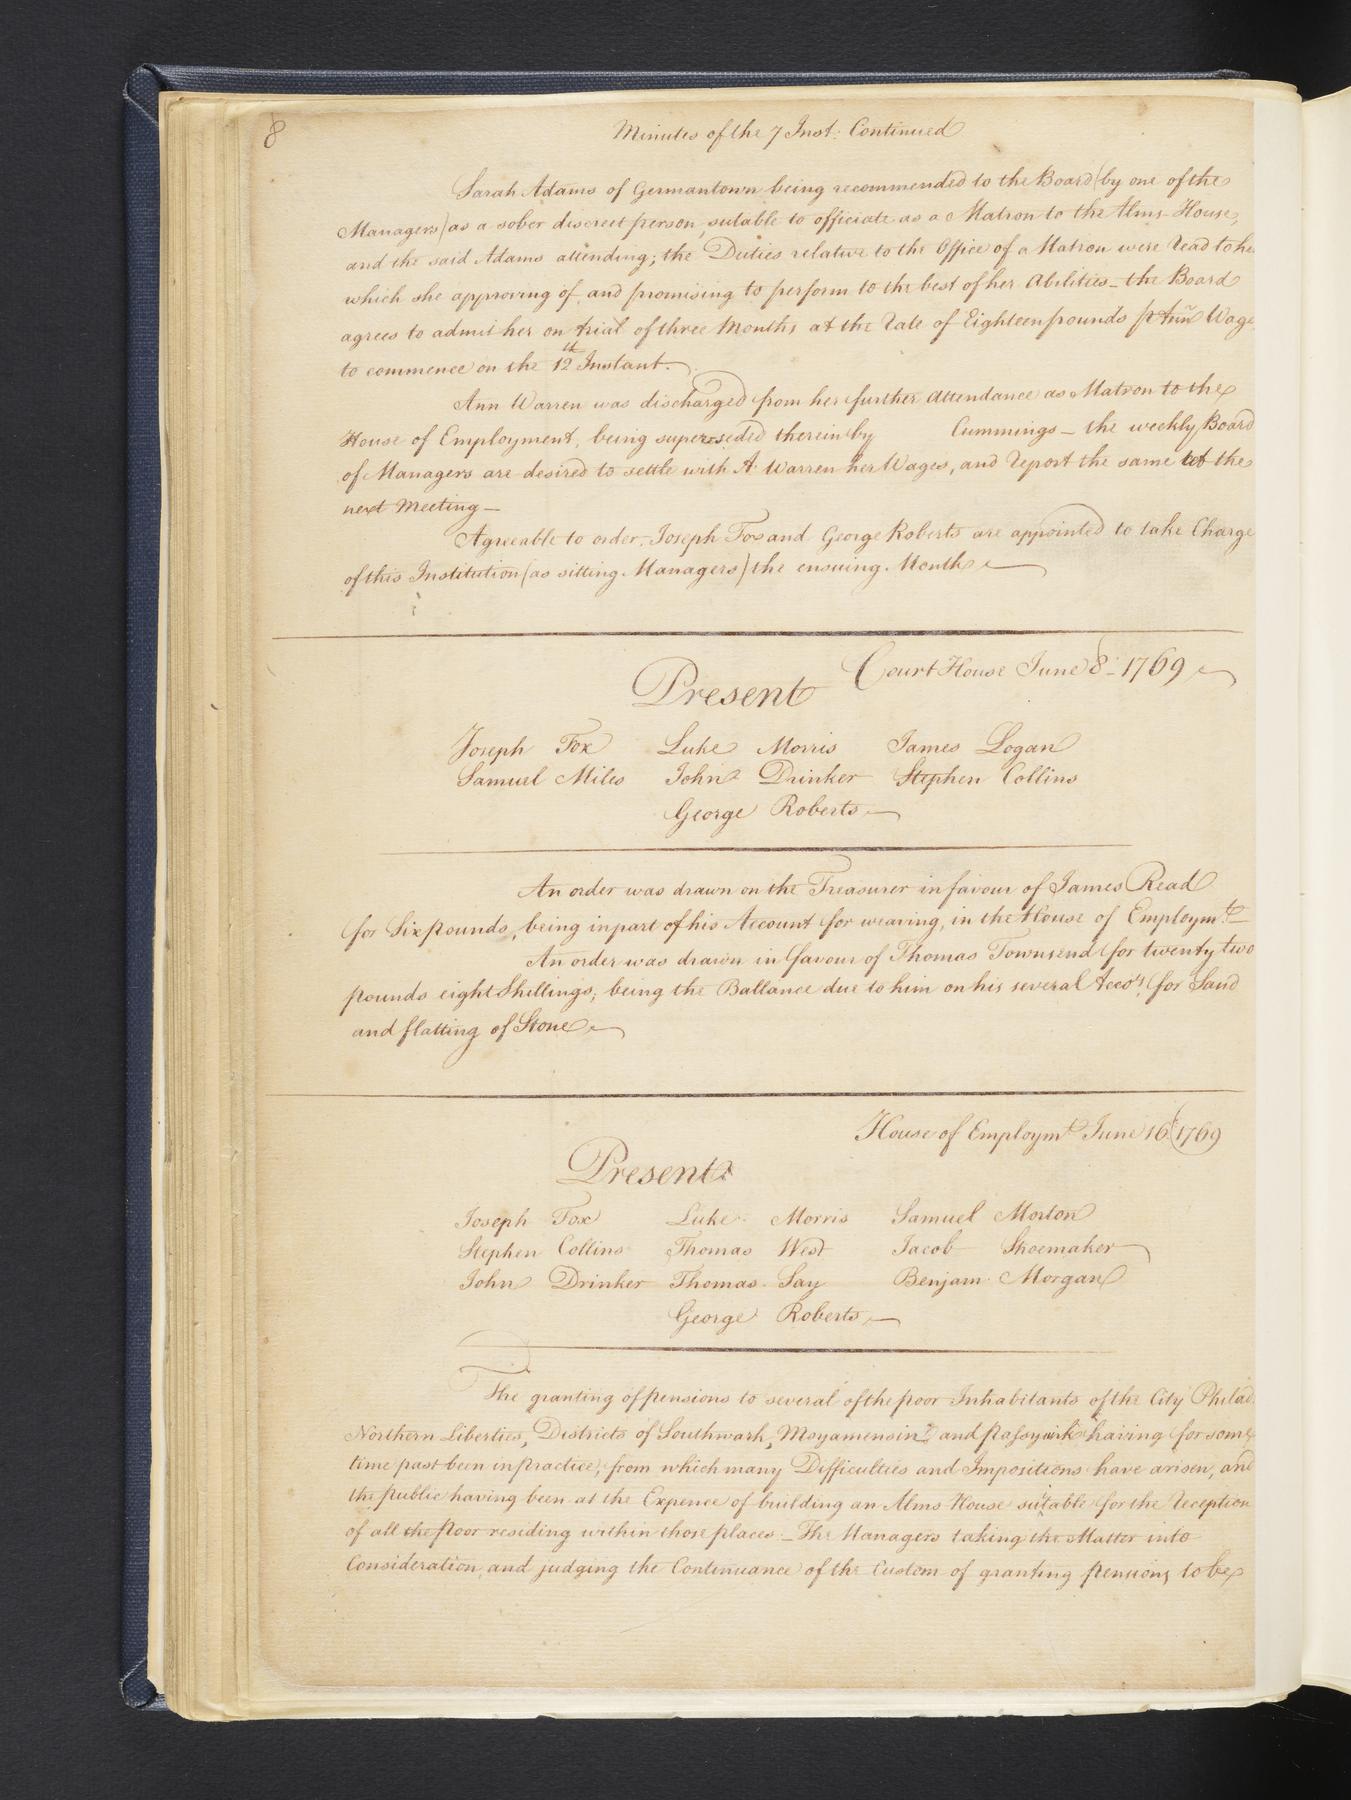 8
Minutes of the 7 Inst: Continued
Sarah Adams of Germantown being recommended to the Board (by one of the
Managers) as a sober discreet person, sutable to officiate as a Matron to the Alms House,
and the said Adams attending; the Duties relative to the Office of a Matron were read to he
which she approving of, and promising to perform to the best of her Abilities - the Board
agrees to admit her on trial of three Months at the rate of Eighteen pounds p Ann Wage
to commence on the 12th Instant.
Ann Warren was discharged from her further attendance as Matron to the
House of Employment, being superseded therein by Cummings - the weekly Board
of Managers are desired to settle with A. Warren her Wages, and report the same at the
next Meeting -
Agreeable to order. Joseph Fox and George Roberts are appointed to take Charge
of this Institution (as sitting Managers) the ensuing Month
Court House June 8 - 1769
Present
Joseph Fox Luke Morris James Logan
Samuel Miles John Drinker Stephen Collins
George Roberts
An order was drawn on the Treasurer in favour of James Read
for Six pounds, being in part of his Account for weaving, in the House of Employmt.
An order was drawn in favour of Thomas Townsend for twenty two
pounds eight Shillings; being the Ballance due to him on his several Acco.ts for Sand
and flatting of Stone
House of Employmt June 16 1769
Present
Joseph Fox Luke Morris Samuel Morton
Stephen Collins Thomas West Jacob Shoemaker
John Drinker Thomas Say Benjam. Morgan
George Roberts
The granting of pensions to several of the poor Inhabitants of the City Philad.
Northern Liberties, Districts of Southwark, Moyamensing and Passyunk having for some
time past been in practice, from which many Difficulties and Impositions have arisen, and
the public having been at the Expence of building an Alms House suitable for the Reception
of all the poor residing within those places - The Managers taking the Matter into
Consideration, and judging the Continuance of the Custom of granting pensions to be